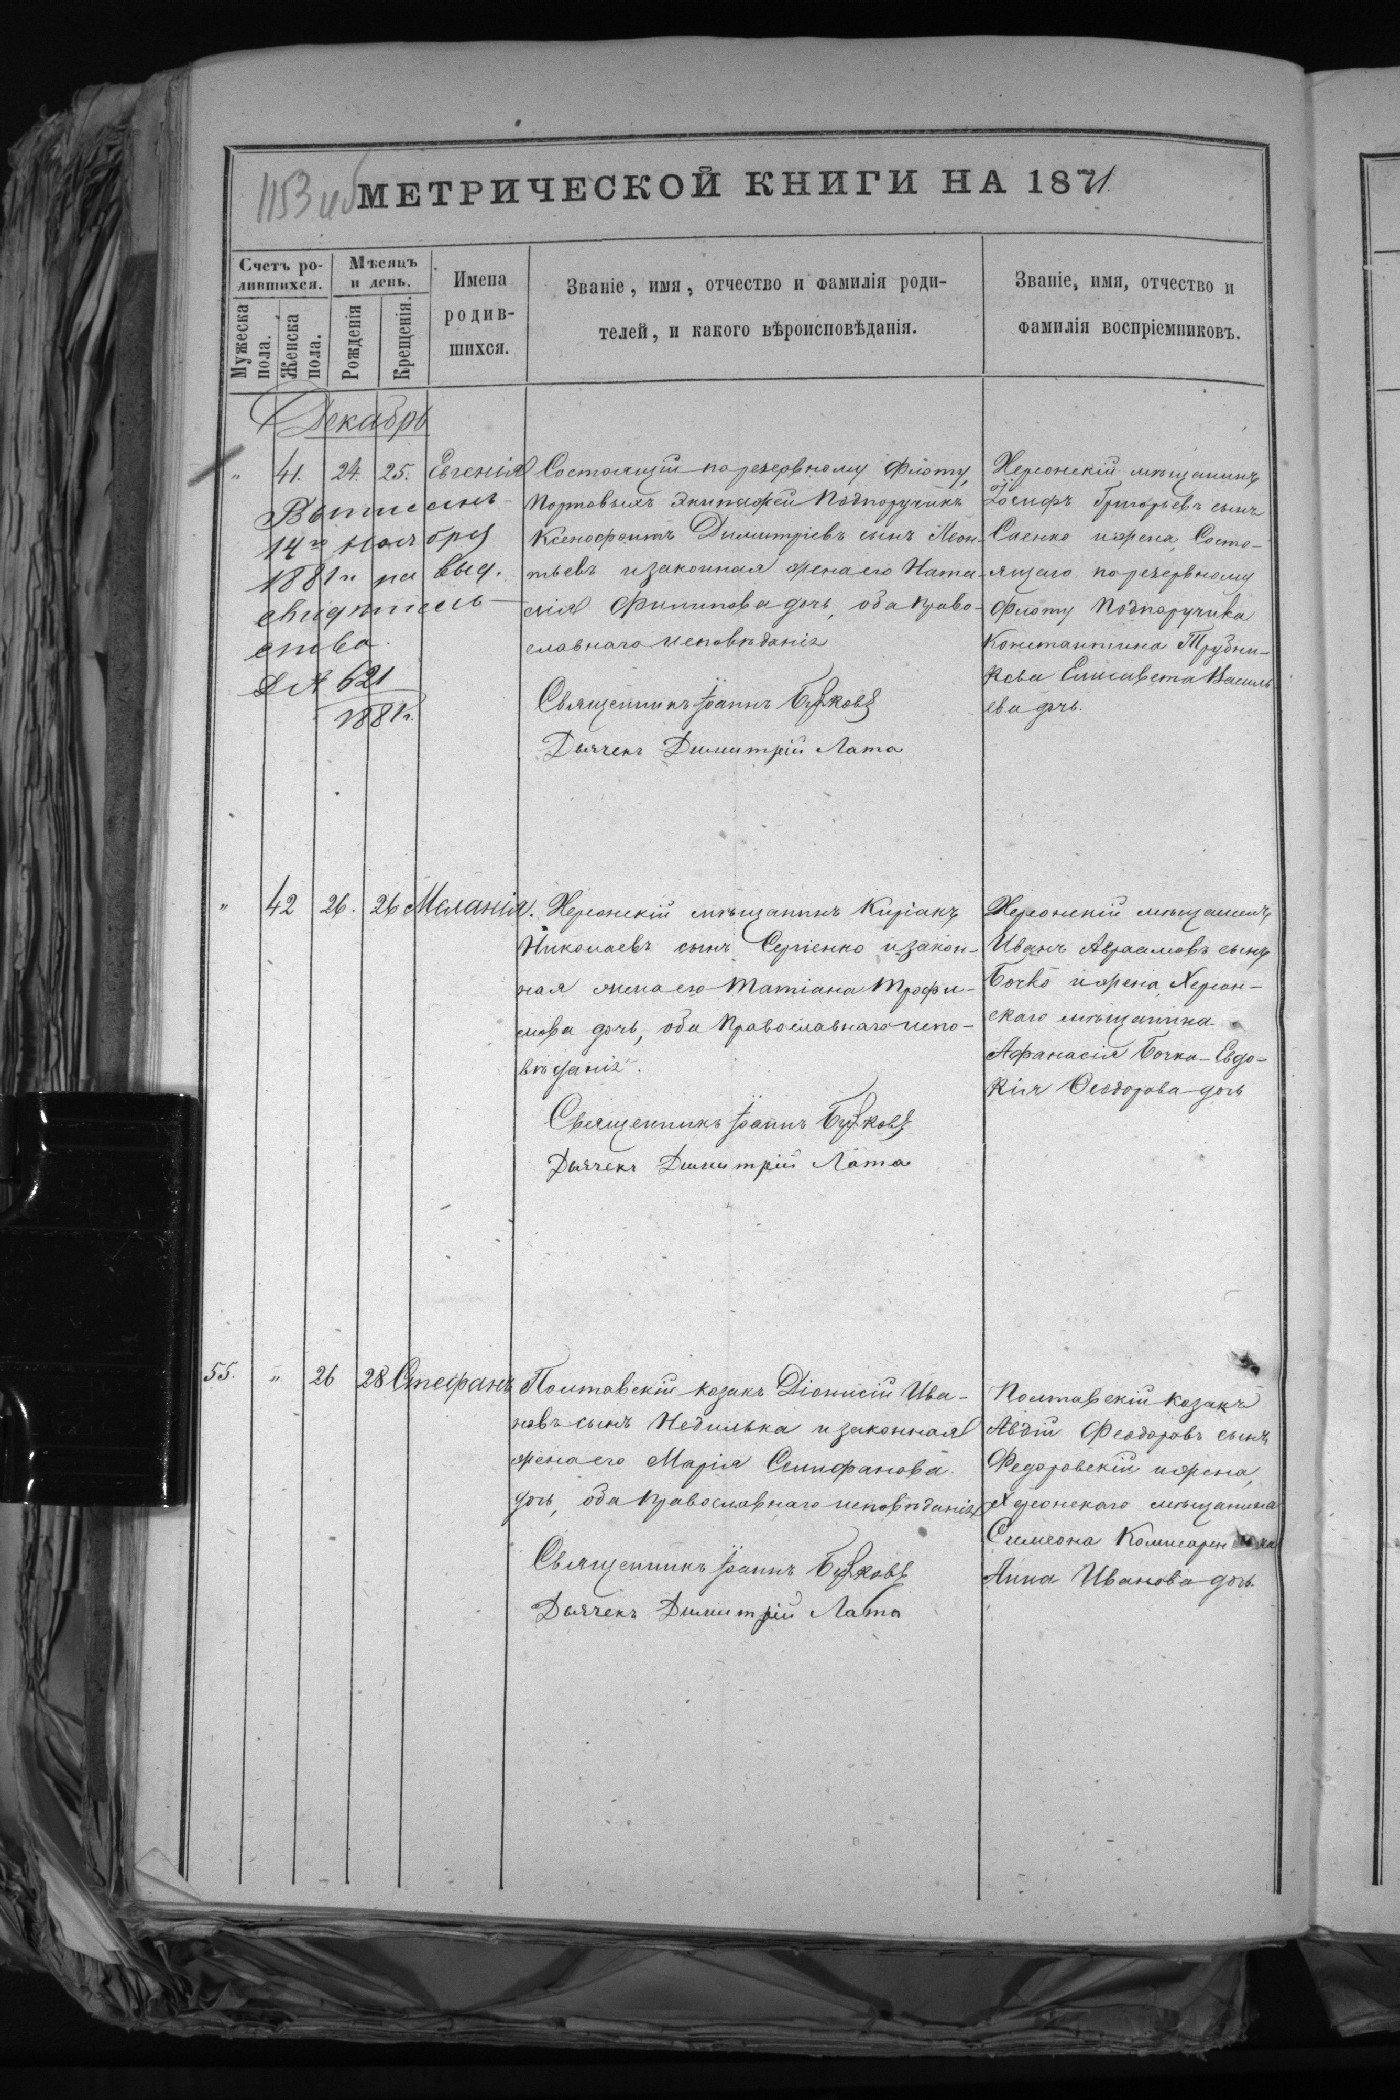 1153 об
МЕТРИЧЕСКОЙ КНИГИ НА 1871
Счетъ ро-
дившихся.
Мужеска
пола.
Женска
пола.
Мѣсяцъ
и день.
Рожденія
Крещенія.
Имена
родив-
шихся.
Званіе, имя, отчество и фамилія роди-
телей, и какого вѣроисповѣданія.
Званіе, имя, отчество и
фамилія воспріемниковъ.
Декабрь
" 41. 24. 25. Евгенія
Выписанъ
14го Ноября
1881г на выд.
свидѣтель-
ства.
Д № 621
1881г.
Состоящій по резервному флоту,
Портовыхъ Экипажей Подпоручикъ
Ксенофонтъ Димитріевъ сынъ Леон-
тьевъ и законная жена его Ната-
лія Филипова дочь, оба право-
славнаго исповѣданія
Священникъ Іоаннъ
Дьячекъ Димитрій Лата
Херсонскій мѣщанинъ
Іосифъ Григорьевъ сынъ
Саенко и жена, Состо-
ящаго по резервному
флоту Подпоручика
Константина Трубни-
кова Елисавета Василь
ева дочь.
" 42 26. 26 Меланія.
Херсонскій мѣщанинъ Киріакъ
Николаевъ сынъ Сергіенко и закон-
ная жена его Татіана Трофи-
мова дочь, оба Православнаго испо-
вѣданія.
Священникъ Іоаннъ
Дьячекъ Димитрій Лата
Херсонскій мѣщанинъ
Иванъ Авраамовъ сынъ
Бочко и жена, Херсон-
скаго мѣщанина
Афанасія Бочка - Евдо-
кія Феодорова дочь
55. " 26 28 Стефанъ
Полтавскій козакъ Діонисій Ива-
новъ сынъ Недилька и законная
жена его Марія Селифанова
дочь, оба Православнаго исповѣданія
Священникъ Іоаннъ
Дьячекъ Димитрій Лата
Полтавскій козакъ
Авдій Феодоровъ сынъ
Федоровскій и жена,
Херсонскаго мѣщанина
Симеона
Анна Иванова дочь